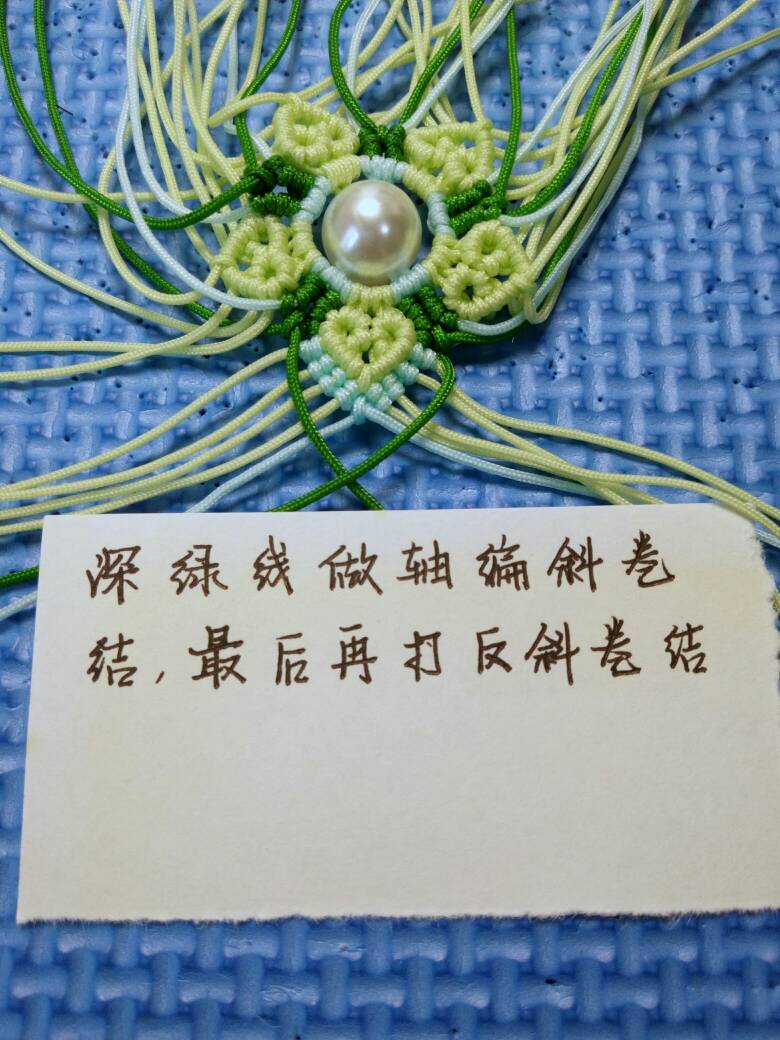 深绿线做轴编斜卷
结,最后再打反斜卷结